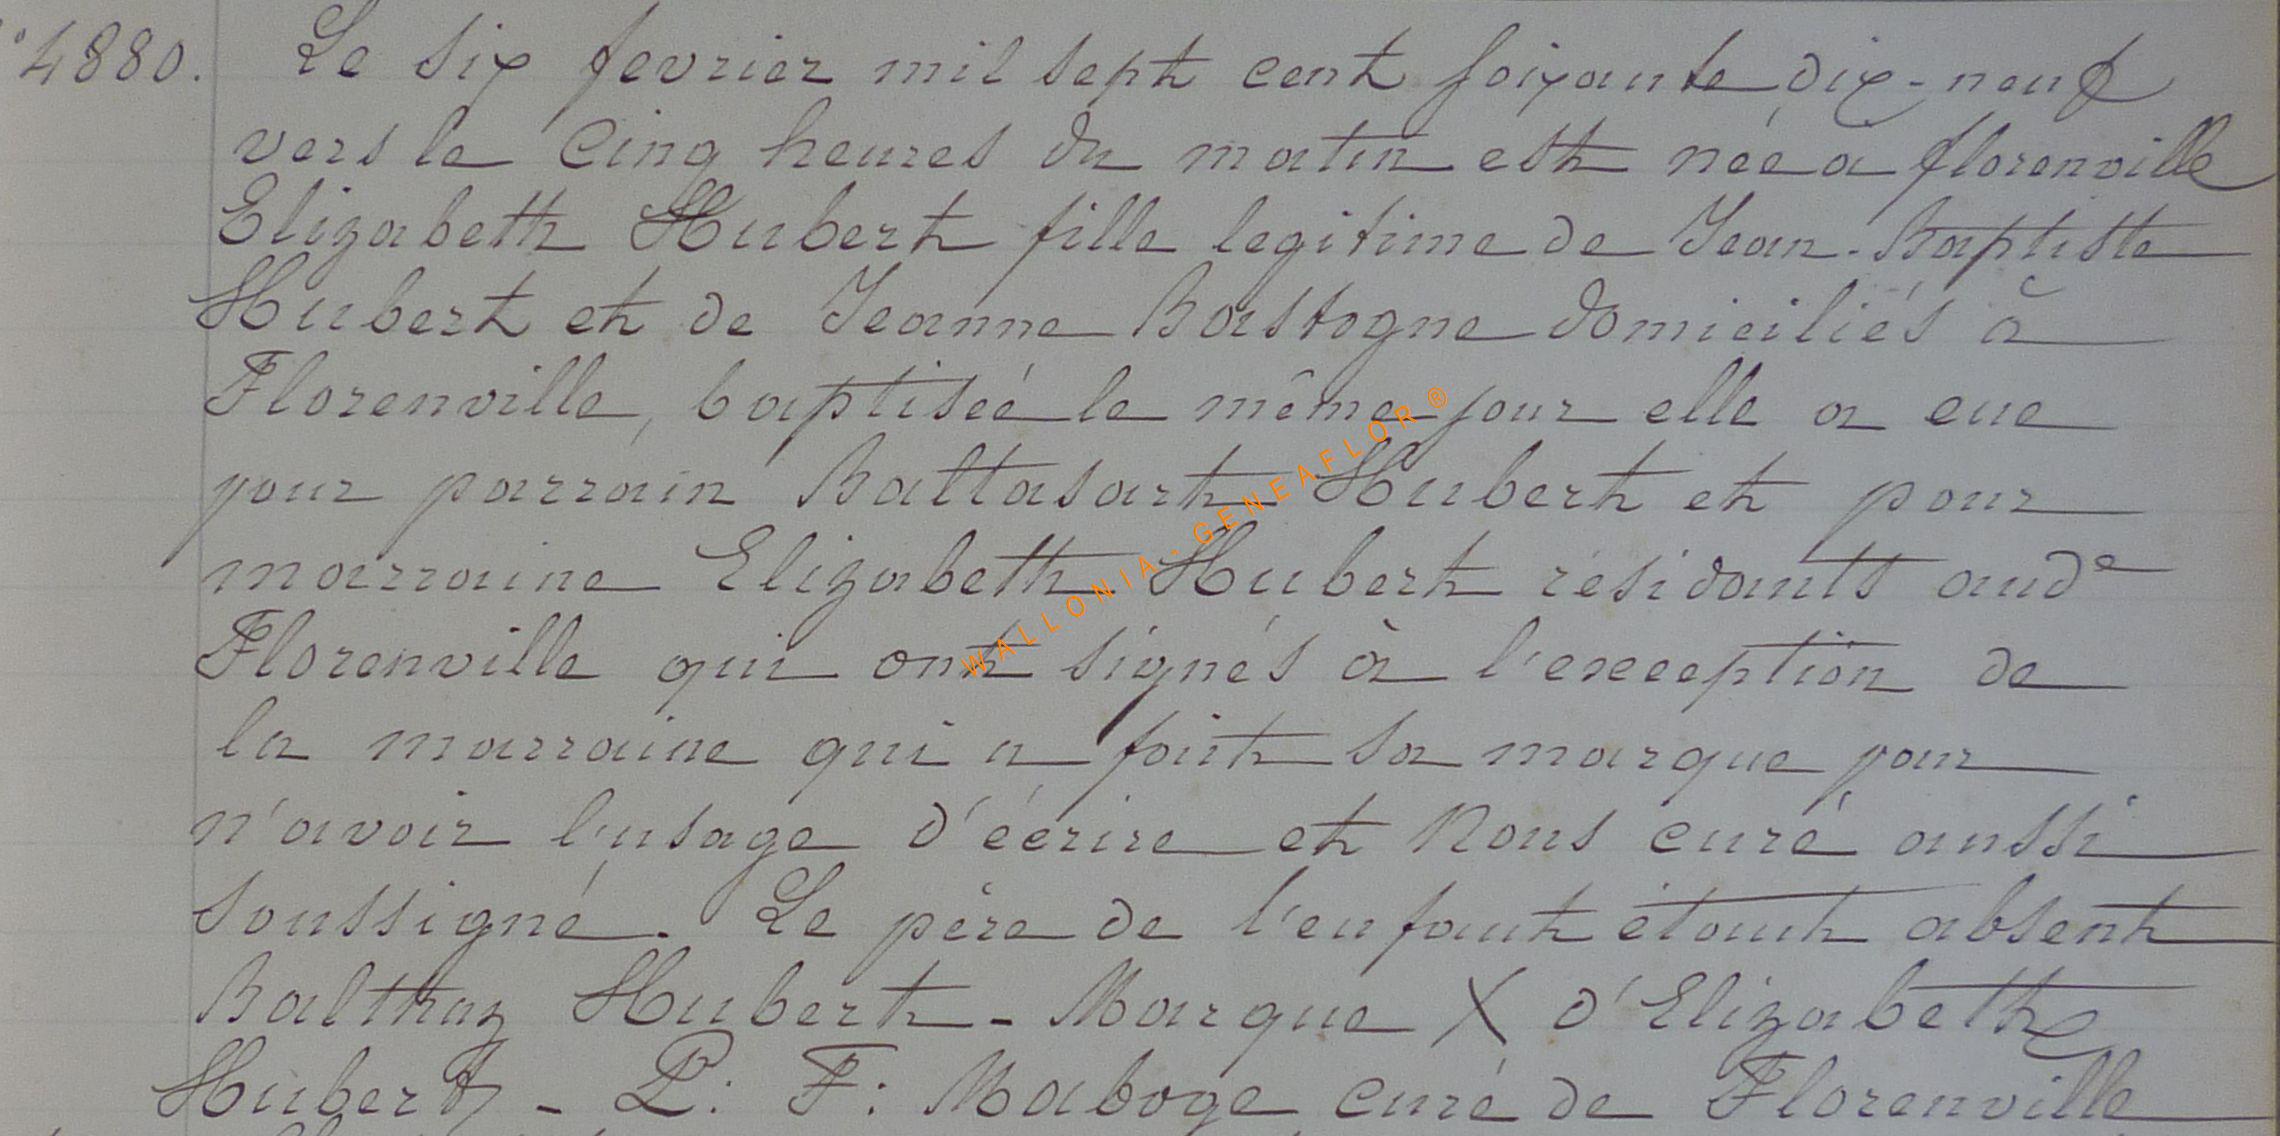 ° 4880. Le six fevrier mil sept cent soixante dix-neuf
vers le cinq heures du matin est née a florenville
Elizabeth Hubert fille legitime de Jean-Baptiste
Hubert et de Jeanne Bastogne domiciliés à
Florenville, baptisée le même jour elle a eue
pour parrain Baltasart Hubert et pour
marraine Elizabeth Hubert résidants aud^e
Florenville qui ont signés à l'exception de
la marraine qui a fait sa marque pour
n'avoir l'usage d'écrire et Nous curé aussi
soussigné. Le père de l'enfant étant absent
Balthaz Hubert - Marque X d'Elizabeth
Hubert - P: F: Maboge curé de Florenville
WALLONIA-GENEAFLOR ®